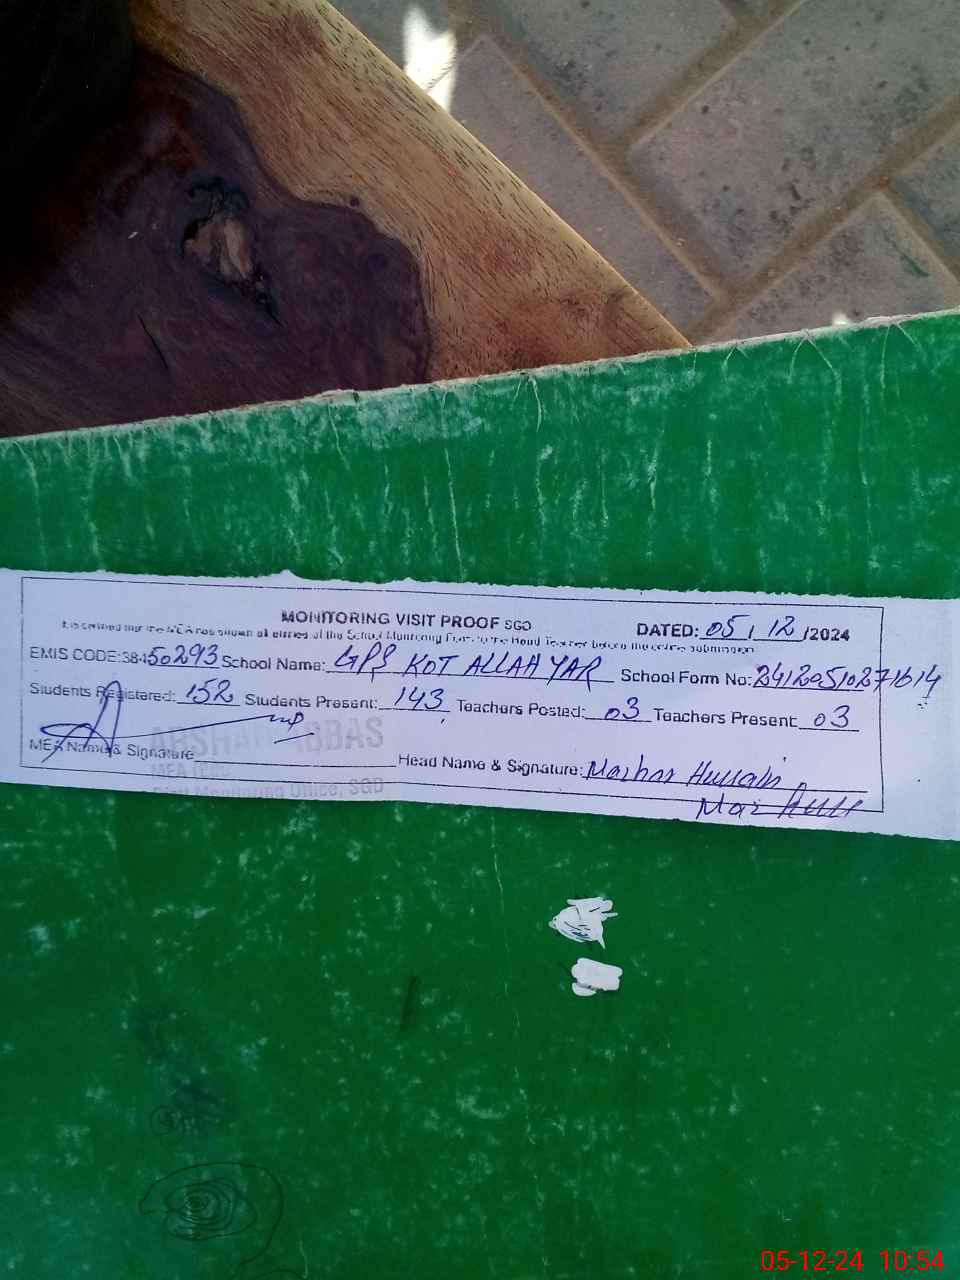 MONITORING VISIT PROOF SGD
DATED: 05 / 12 /2024
It is certified that the MEA has shown all entries of the School Monitoring Form to the Head Teacher before the online submission
EMIS CODE:38450293 School Name: GPS KOT ALLAH YAR School Form No: 24120510271614
Students Registered: 152 Students Present: 143 Teachers Posted: 03 Teachers Present: 03
ABBAS
MEA Name & Signature Head Name & Signature: Mazhar Hussain
Monitoring Office, SGD
05-12-24 10:54